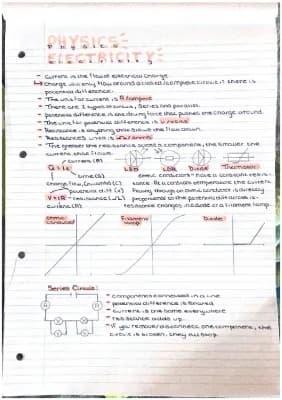 PHYSICS:
Physics
ELECTRICITY:
- current is the flow of electrical charge
charge will only flow around a closed (complete) circuit if there is
potential difference.
- The unit for current is Ampere
- There are 2 types of circuits, series and parallel.
- potential difference is the driving force that pushes the charge around.
- The unit for potential difference is
- Resistance is anything that slows the flow down.
- Resistance's unit is
- The greater the resistance across a component, the smaller the
current that flows.
current (A)
Q = It
time (s)
charge flow, (coulombs) (C)
potential diff (V)
V = IR - resistance (Ω)
current (A)
LED LDR Diode Thermistor
ohmic conductors - have a constant resis-
tance. At a constant temperature the current
flowing through an ohmic conductor is directly
proportional to the potential diff across it.
resistance changes in diode or a filament lamp.
ohmic conductor
Filament lamp
Diode
Series Circuit:
- components connected in a line
- potential difference is shared
- current is the same everywhere
- resistance adds up
- If you remove/disconnect one component, the
circuit is broken, they all stop.